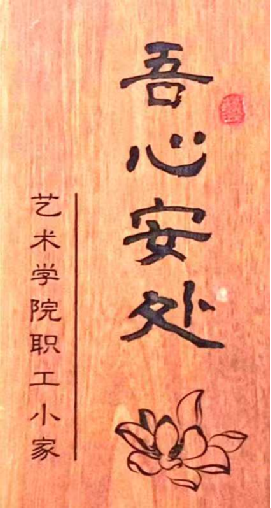 吾心安处
艺术学院职工小家